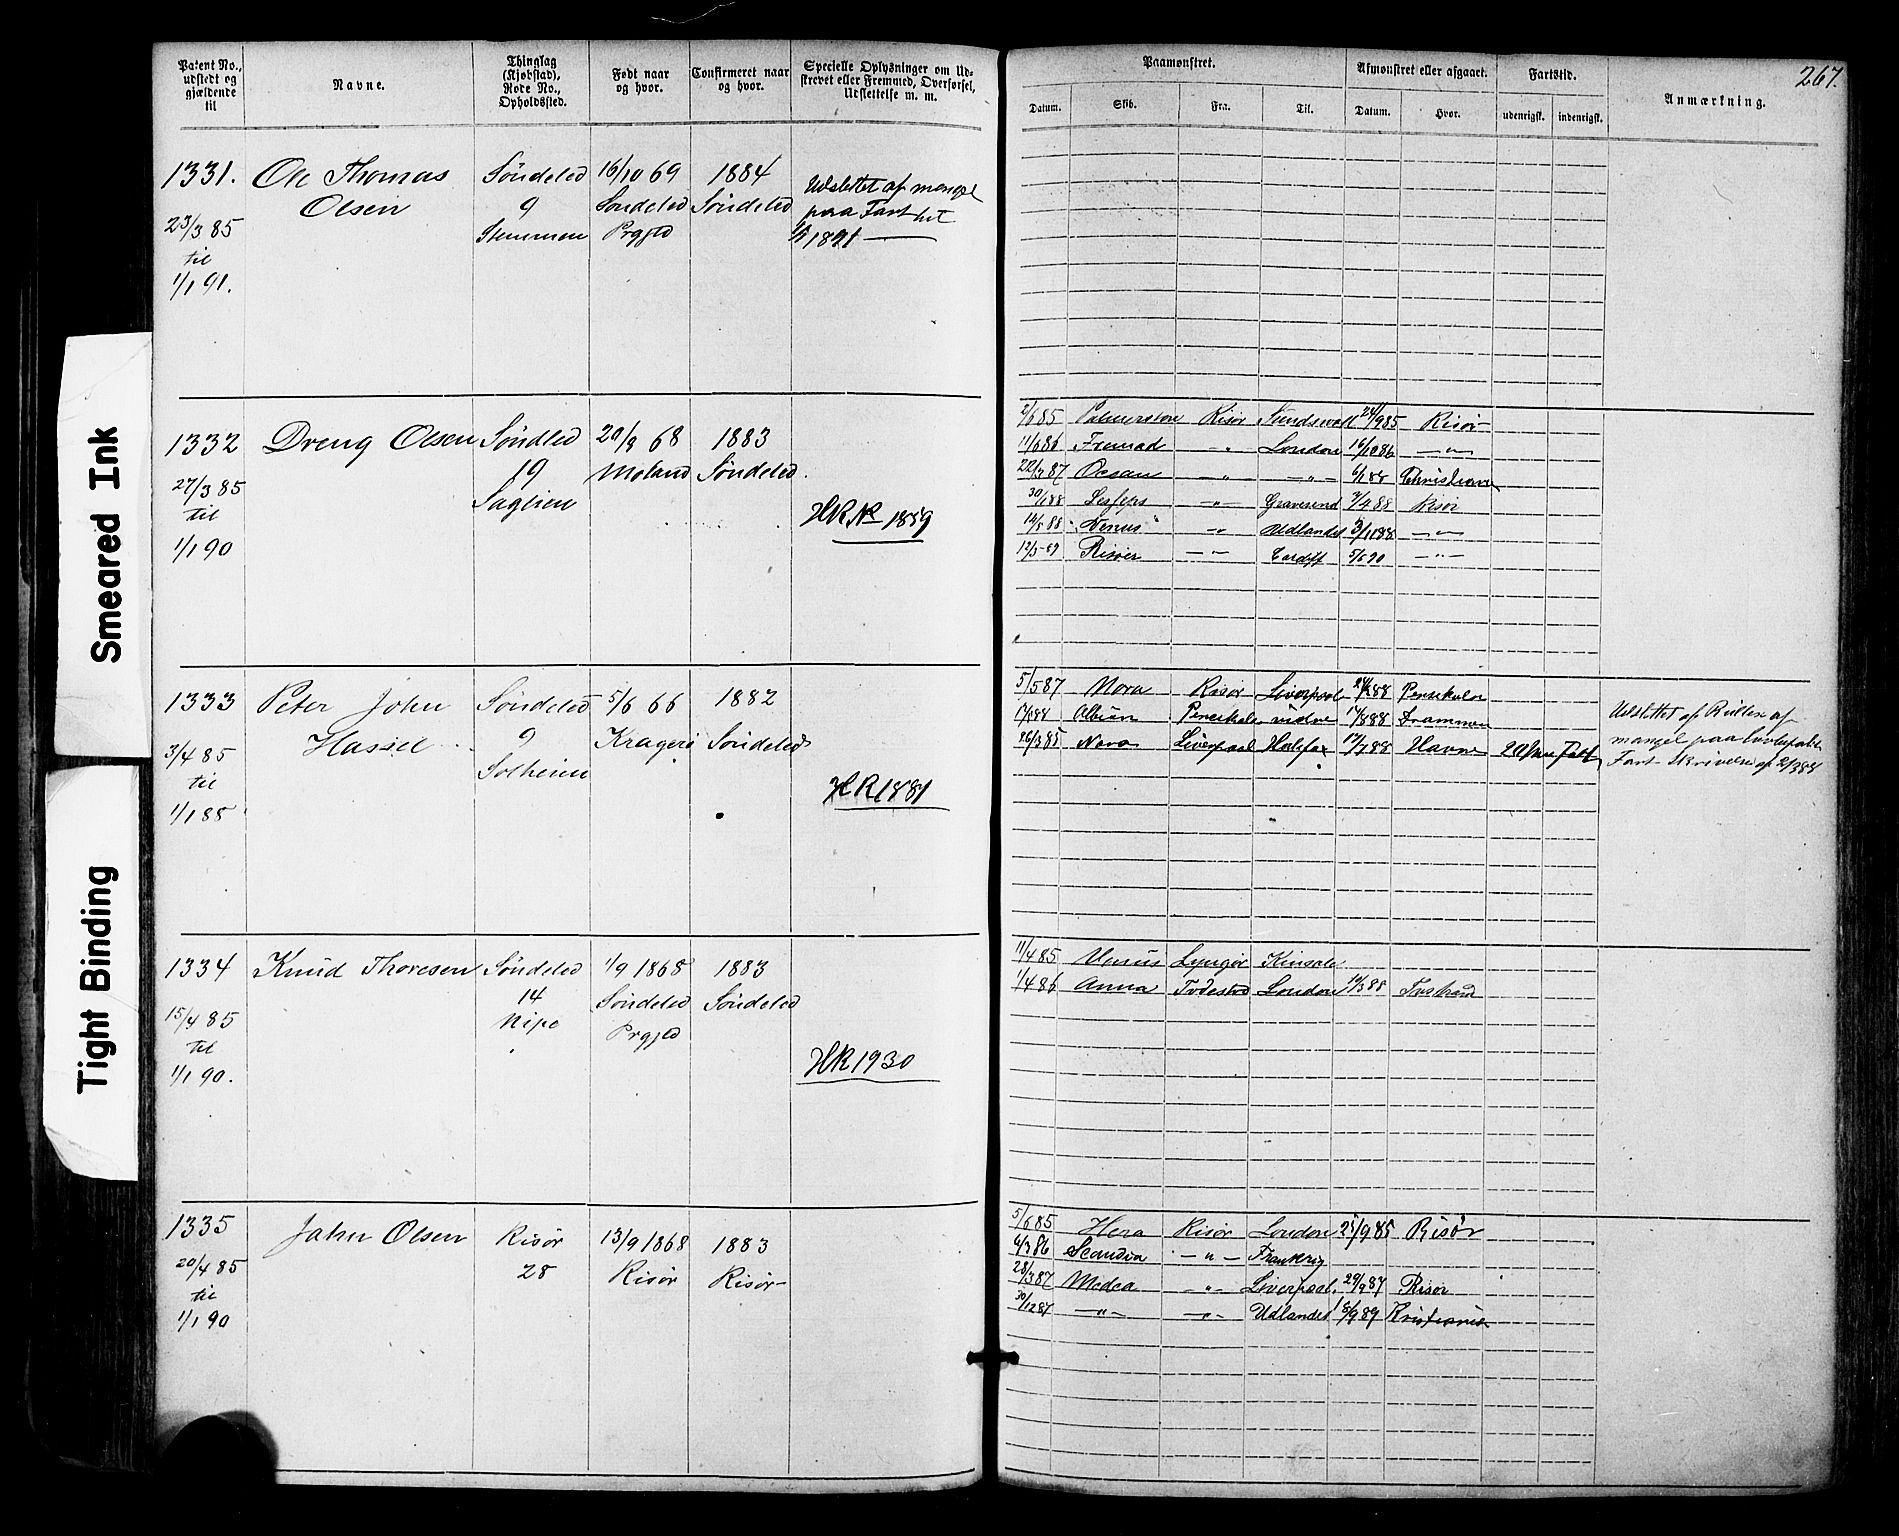 267.
Patent No., udstedt og gjældende til
Navne.
Thinglag (Kjøbstad), Rode No., Opholdssted.
Født naar og hvor.
Confirmeret naar og hvor.
Specielle Oplysninger om Udskrevet eller Fremmed, Overførsel, Udslettelse m. m.
Paamønstret.
Afmønstret eller afgaaet.
Fartstid.
Anmærkning.
Datum. Skib. Fra. Til. Datum. Hvor. udenrigsk. indenrigsk.
1331. Ole Thomas Söndeled 16/10 69 1884 Udslettet af mangel
Olsen 9 Söndeled Söndeled paa Fart
23/3 85 Stemmen Prgjld 1/1 1891
til
1/1 91.
1332 Dreng Olsen Söndled 20/8 68 1883
19 Moland Söndeled.
27/3 85 Saglien
til
1/1 90
HR No 1859
2/6 85 Palmerston Risør Sundsvall 24/9 85 Risør
11/6 86 Fremad -"- London 16/10 86 -"-
22/3 87 Ocean -"- -"- 6/1 88 Christiania
30/1 88 Lesseps -"- Gravesend 3/4 88 Risör
14/5 88 "Venus" -"- Udlandet 3/11 88 -"-
12/3-89 Risöer -"- Cardiff 5/6 90 -"-
1333 Peter John Söndeled 5/6 66 1882
Hassel 9 Kragerö Söndeled
3/4 85 Solheim
til
1/1 85
HR 1881
5/5 87 Nora Risør Liverpool Pensikola
Albion Pensikola Drammen
26/3 85 Nora Liverpool Halifax 17/7 88 Havne
Udslettet af Rullen af
mangel paa lovbefalet
Fart Skrivelse af 2/3 88
1334 Knud Thoresen Söndeled 1/9 1868 1883
14 Söndeled Söndeled
15/4 85 Nipe Prgjld
til
1/1 90.
HR 1930
11/4 85 Venus Lyngör Kinsale
1/4 86 Anna Tvedestrd London 14/3 88
1335 John Olsen Risør 13/9 1868 1883
20/4 85 28 Risør Risør
til
1/1 90
5/6 85 Hera Risør London 25/9 85 Risør
6/3 86 Scandia -"- Frankrig
28/3 87 Medea -"- Liverpool. 29/9 87 Risör
30/12 87 -"- -"- Udlandet 18/9 89 Kristiania
Smeared Ink
Tight Binding